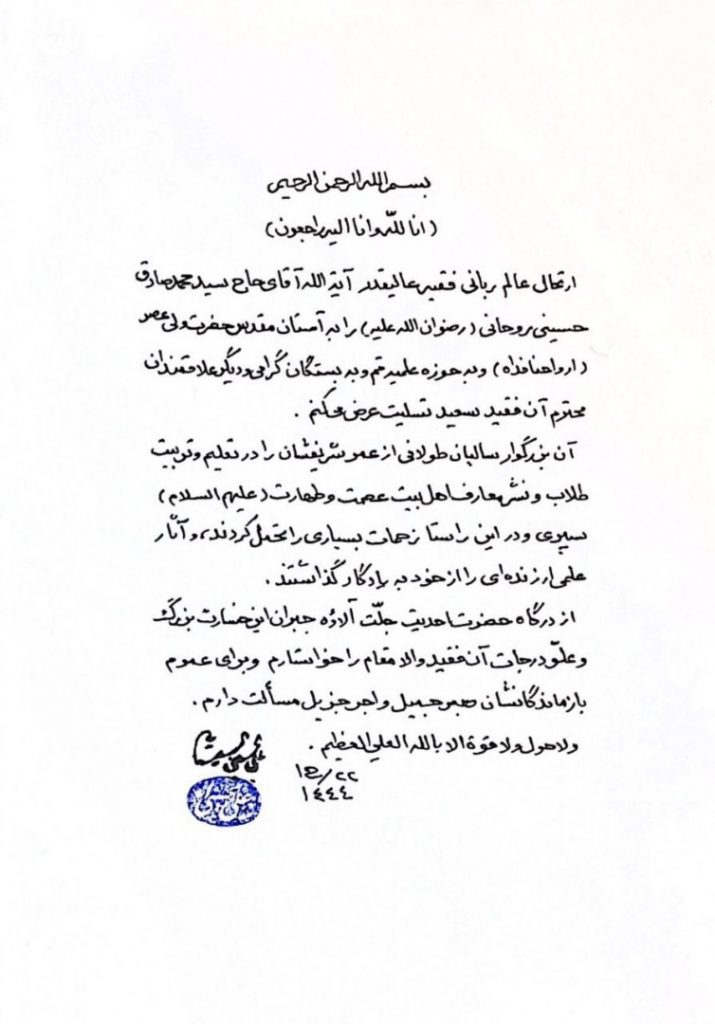 بسم الله الرحمن الرحیم
(انا لله وانا الیه راجعون)
ارتحال عالم ربانی فقیه عالیقدر آیة الله آقای حاج سید محمد صادق
حسینی روحانی (رضوان الله علیه) را به آستان مقدس حضرت ولی عصر
(ارواحنا فداه) و به حوزه علمیه قم و به بستگان گرامی و دیگر علاقمندان
محترم آن فقید سعید تسلیت عرض میکنم.
آن بزرگوار سالیان طولانی از عمر شریفشان را در تعلیم و تربیت
طلاب و نشر معارف اهل بیت عصمت و طهارت (علیهم السلام)
سپری و در این راستا زحمات بسیاری را تحمل کردند، و آثار
علمی ارزنده ای را از خود به یادگار گذاشتند.
از درگاه حضرت احدیت جلّت آلاؤه جبران این خسارت بزرگ
و علوّ درجات آن فقید والا مقام را خواستارم و برای عموم
بازماندگانشان صبر جمیل و اجر جزیل مسألت دارم.
ولا حول ولا قوة الا بالله العلي العظیم.
علی الحسینی السیستانی
۲۲/ج۱
۱۴۴۴